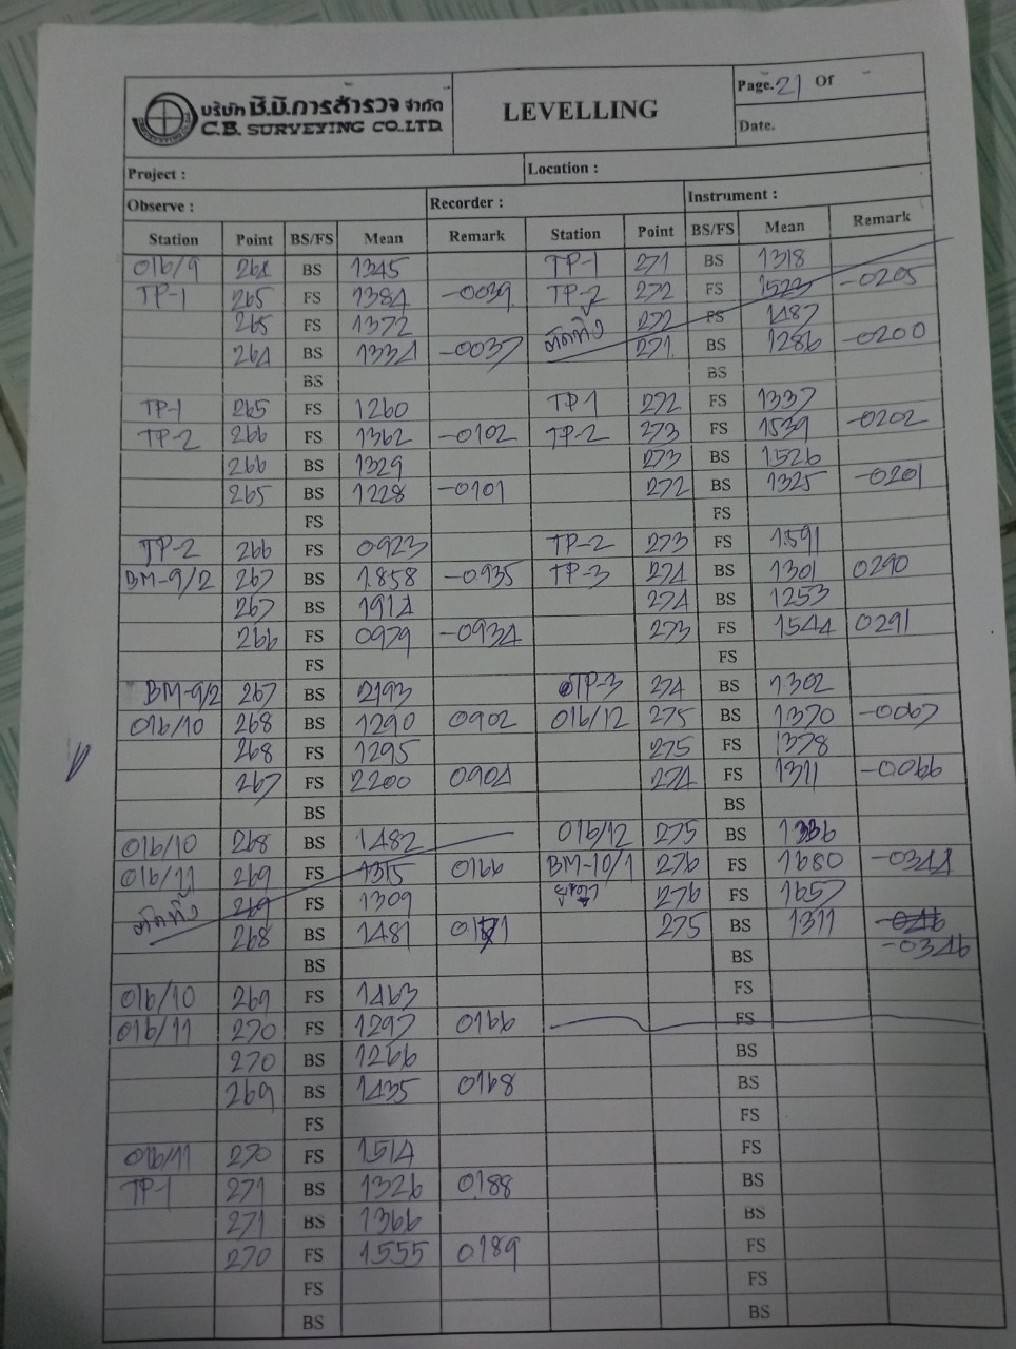 บริษัท ซี.บี.การสำรวจ จำกัด
C.B. SURVEYING CO.,LTD.
LEVELLING
Page. 21 Of -
Date.
Project :
Location :
Observe :
Recorder :
Instrument :
Station Point BS/FS Mean Remark Station Point BS/FS Mean Remark
016/9 264 BS 1345 TP-1 271 BS 1318
TP-1 265 FS 1384 -0039 TP-2 272 FS 1523 -0205
265 FS 1372 ตัดทิ้ง 272 FS 1487
264 BS 1334 -0037 271 BS 1286 -0200
BS BS
TP-1 265 FS 1260 TP1 272 FS 1337
TP-2 266 FS 1362 -0102 TP-2 273 FS 1539 -0202
266 BS 1329 273 BS 1526
265 BS 1228 -0101 272 BS 1325 -0201
FS FS
TP-2 266 FS 0923 TP-2 273 FS 1591
BM-9/2 267 BS 1858 -0935 TP-3 274 BS 1301 0290
267 BS 1914 274 BS 1253
266 FS 0979 -0934 273 FS 1544 0291
FS FS
BM-9/2 267 BS 2193 TP-3 274 BS 1302
016/10 268 BS 1290 0902 016/12 275 BS 1370 -0067
268 FS 1295 275 FS 1378
267 FS 2200 0904 274 FS 1311 -0066
BS BS
016/10 268 BS 1482 016/12 275 BS 1336
016/11 269 FS 1315 0166 BM-10/1 276 FS 1680 -0344
ตัดทิ้ง 269 FS 1309 276 FS 1657
268 BS 1481 0171 275 BS 1311
BS BS -0346
016/10 269 FS 1463 FS
016/11 270 FS 1297 0166 FS
270 BS 1266 BS
269 BS 1435 0168 BS
FS FS
016/11 270 FS 1514 FS
TP-1 271 BS 1326 0188 BS
271 BS 1366 BS
270 FS 1555 0189 FS
FS FS
BS BS